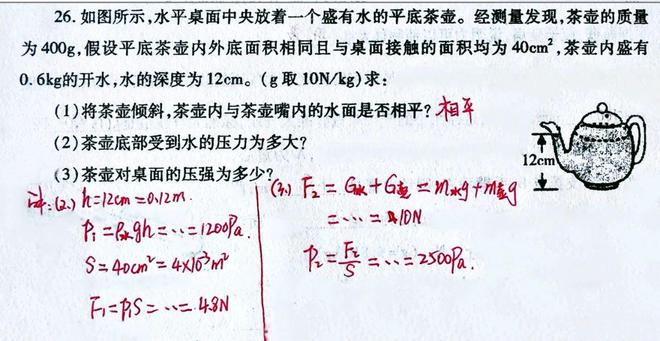 26. 如图所示,水平桌面中央放着一个盛有水的平底茶壶。经测量发现,茶壶的质量
为 400g,假设平底茶壶内外底面积相同且与桌面接触的面积均为 40cm²,茶壶内盛有
0.6kg的开水,水的深度为 12cm。(g 取 10N/kg)求:
(1)将茶壶倾斜,茶壶内与茶壶嘴内的水面是否相平? 相平
(2)茶壶底部受到水的压力为多大?
(3)茶壶对桌面的压强为多少?
12cm
解:(2.) h=12cm=0.12m.
P₁=ρ水gh=…=1200Pa.
S=40cm²=4×10⁻³m²
F₁=P₁S=…=4.8N
(3.) F₂=G水+G壶=m水g+m壶g
=…=10N
P₂=F₂/S=…=2500Pa.